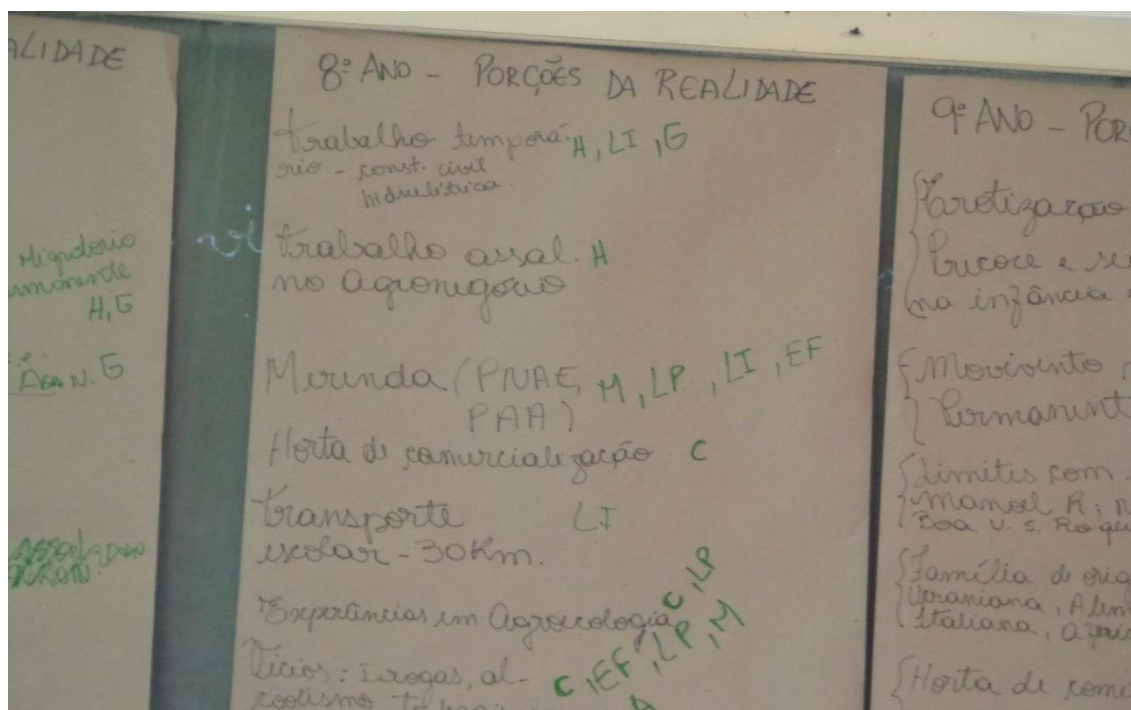 ALIDADE
Migratório
H, G
G
8º ANO - PORÇÕES DA REALIDADE
Trabalho temporá- H, LI, G
rio - const. civil
hidrelétrica.
Trabalho assal. H
no Agronegócio
Merenda (PNAE, M, LP, LI, EF
PAA)
Horta de comercialização C
Transporte LI
escolar - 30Km.
Experiências em Agroecologia C, LP
Vícios: Drogas, al- C, EF, LP, M
coolismo
9º ANO - POR
na infância
Movivento
Permanent
Limites com
Manoel R;
Boa V. S. Roqu
Família de orig
Ucraniana, Alem
Italiana,
Horta de comer